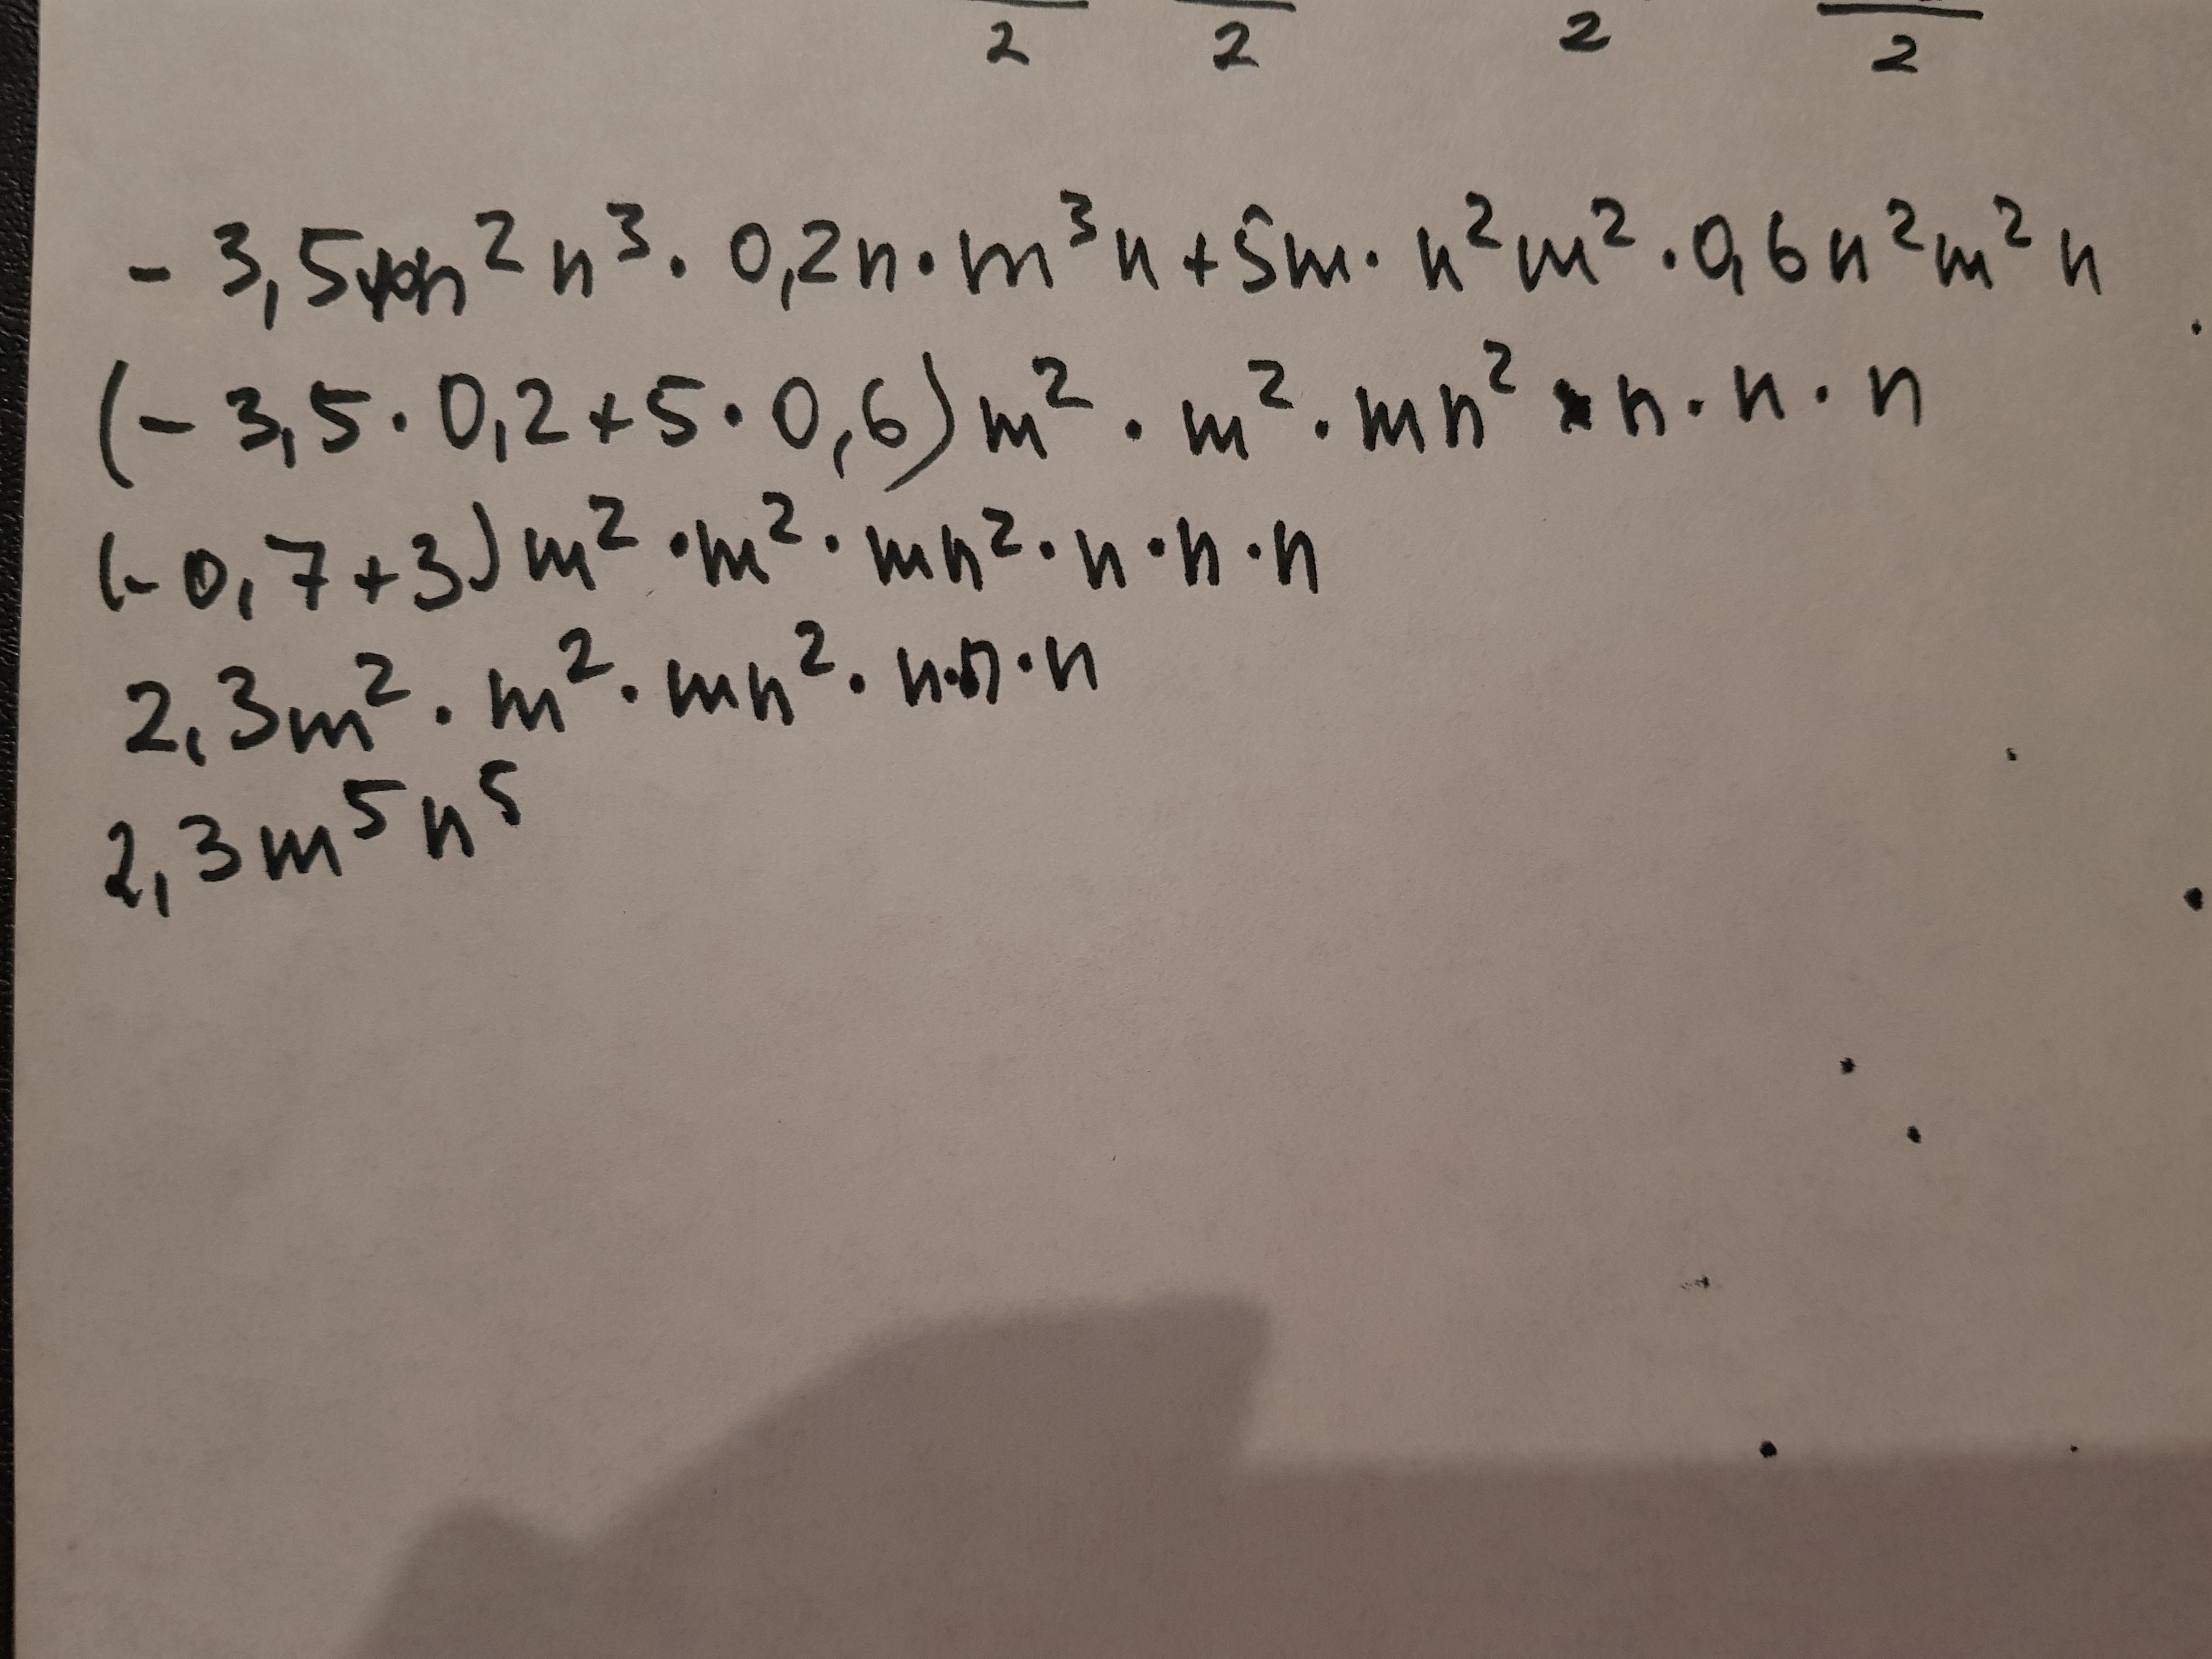 2 2 2 2
- 3,5m²n³. 0,2n·m³n+5m· n²m²·0,6n²m²n
(- 3,5·0,2+5·0,6)m²·m²·mn²·n·n·n
(-0,7+3)m²·m²·mn²·n·n·n
2,3m²·m²·mn²·n·n·n
2,3m⁵n⁵